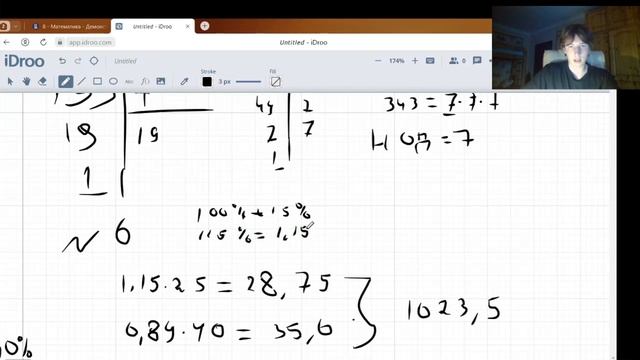 8 - Математика - Демонс
Untitled - iDroo
app.idroo.com
Untitled - iDroo
iDroo
Untitled
Stroke
3 pn
Fill
174%
0
133
7
49
2
343 = 7·7·7
19
19
2
7
НОД = 7
1
1
№ 6
100% + 15%
115% = 1,15
1,15·25 = 28,75
1023,5
0,89·40 = 35,6
0%